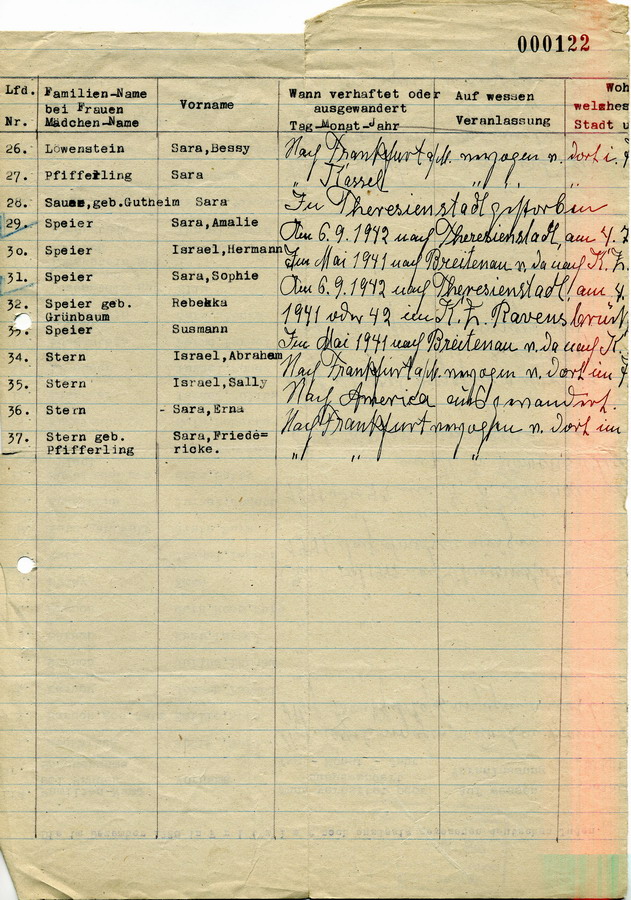 000122
Lfd. Nr. Familien-Name bei Frauen Mädchen-Name Vorname Wann verhaftet oder ausgewandert Tag-Monat-Jahr Auf wessen Veranlassung Woh welches Stadt u
26. Löwenstein Sara,Bessy Nach Frankfurt a/M. verzogen v. dort i.
27. Pfifferling Sara " Kassel " "
28. Sauss,geb.Gutheim Sara In Theresienstadt gestorben
29. Speier Sara,Amalie Am 6.9.1942 nach Theresienstadt, am 4.
30. Speier Israel,Hermann Im Mai 1941 nach Breitenau v. da nach K.Z.
31. Speier Sara,Sophie Am 6.9.1942 nach Theresienstadt, am 4.
32. Speier geb. Rebekka 1941 oder 42 im K.Z. Ravensbrück
Grünbaum
33. Speier Susmann Im Mai 1941 nach Breitenau v. da nach K
34. Stern Israel,Abraham Nach Frankfurt a/M. verzogen v. dort im
35. Stern Israel,Sally Nach America ausgewandert.
36. Stern - Sara,Erna Nach Frankfurt verzogen v. dort im
37. Stern geb. Sara,Friede= " " "
Pfifferling ricke.